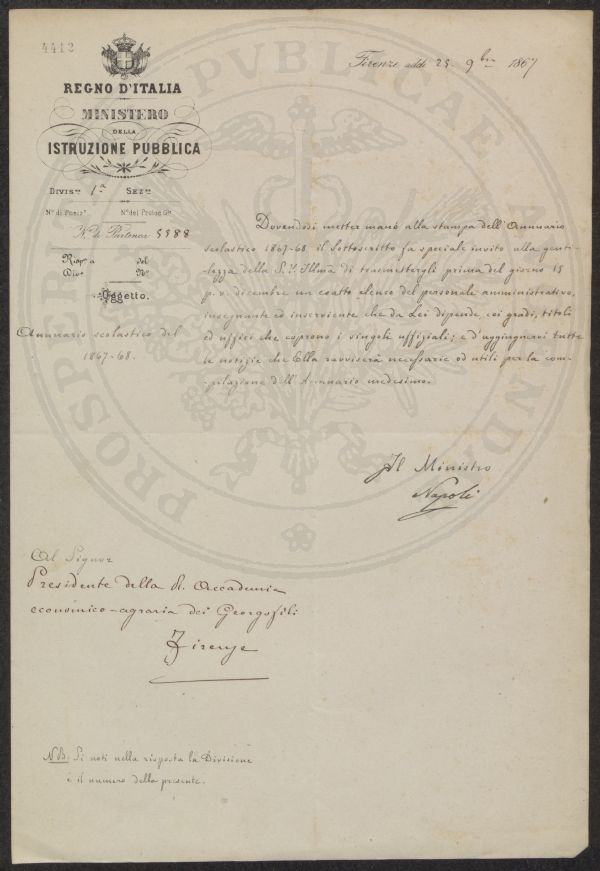 4412
Firenze addì 25 9bre 1867
REGNO D'ITALIA
MINISTERO
DELLA
ISTRUZIONE PUBBLICA
DIVISne 1a SEZne
No di Posizne No del Protoc. Gle
No di Partenza 5588
Rispa a del
Div. No
Oggetto.
Annuario scolastico del
1867-68.
Dovendosi metter mano alla stampa dell'Annuario
scolastico 1867-68. il sottoscritto fa speciale invito alla genti-
lezza della S. V. Illma di trasmettergli prima del giorno 15
p. v. dicembre un esatto elenco del personale amministrativo,
insegnante ed inserviente che da Lei dipende, coi gradi, titoli
ed uffici che coprono i singoli uffiziali; e d'aggiugnervi tutte
le notizie che Ella ravviserà necessarie od utili per la com-
pilazione dell'Annuario medesimo.
Il Ministro
Napoli
Al Signor
Presidente della R. Accademia
economico-agraria dei Georgofili
Firenze
NB. Si noti nella risposta la Divisione
e il numero della presente.
PROSPERITATI PUBLICAE AUGENDAE